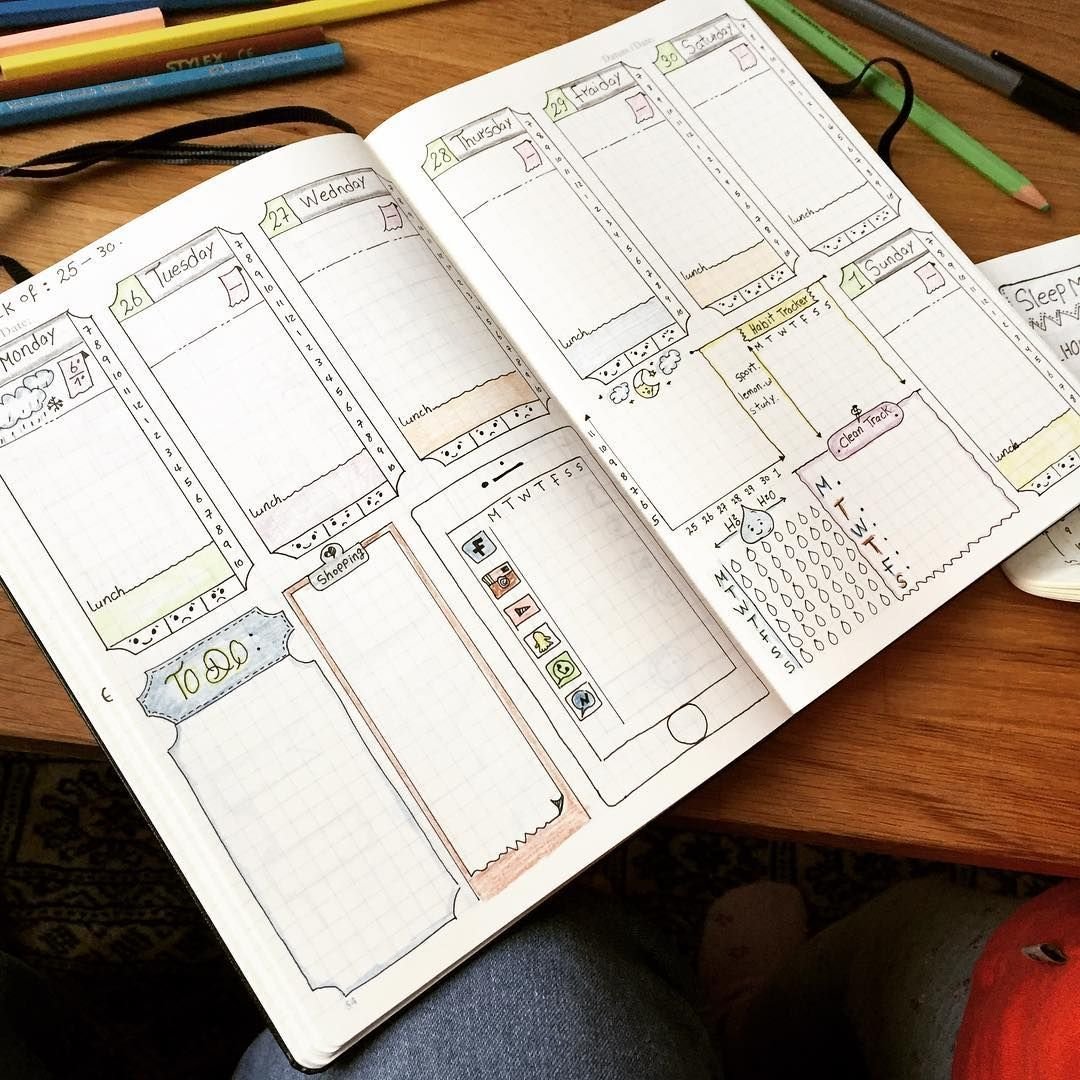 STYLEX CE
K of: 25 - 30.
Date:
Monday
6°
1°
7
8
9
10
11
12
1
2
3
4
5
6
7
8
9
10
lunch
26 Tuesday
7
8
9
10
11
12
1
2
3
4
5
6
7
8
9
10
lunch
27 Wednday
lunch
28 Thursday
7
8
9
10
11
12
1
2
3
4
5
6
7
8
9
10
lunch
29 Fraiday
lunch
30 Saturday
lunch
1 Sunday
lunch
To Do:
Shopping
M T W T F S S
Habit Tracker
M T W T F S S
sport.
lemon.
study.
11
10
9
8
7
6
5
25 26 27 28 29 30 1
H2O
M
T
W
T
F
S
S
Clean Track
M.
T
W
T
F
S
54
Sleep M
Datum / Date: